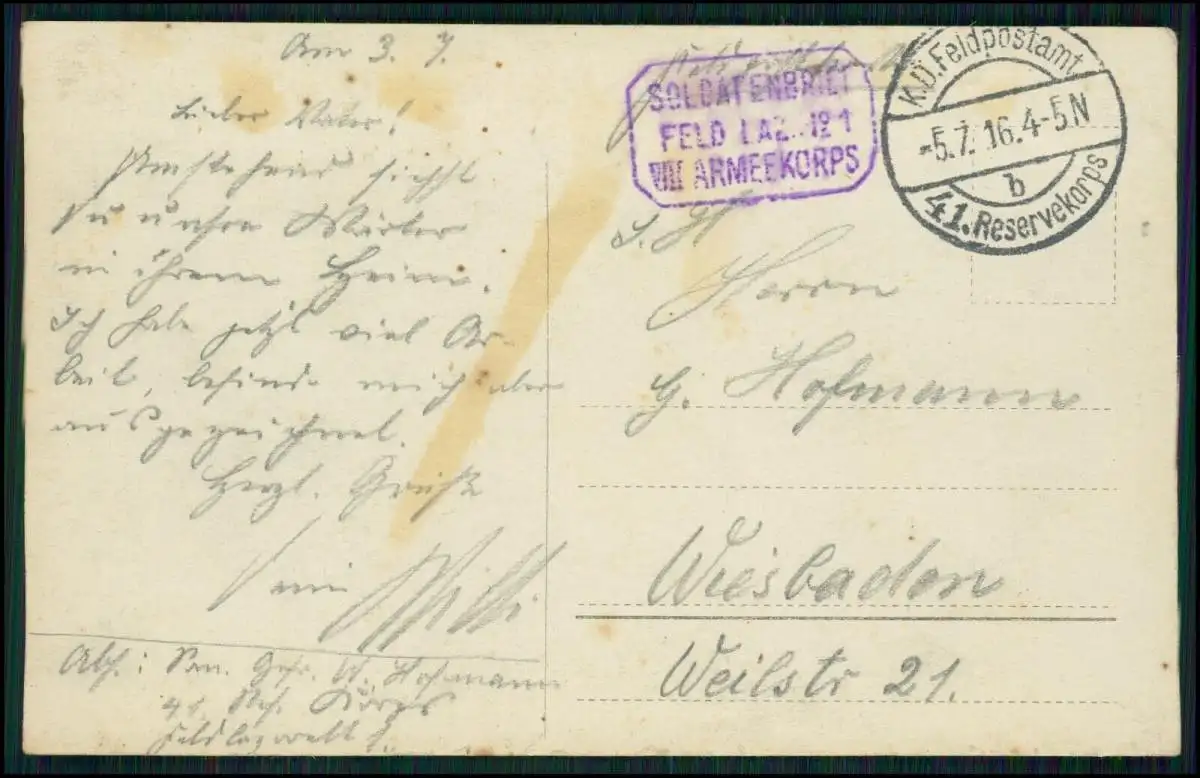 Am 3. 7.
Lieber Vater!
Umstehend siehst
Du unsere Wärter
in ihrem Heim.
Ich habe jetzt viel Ar-
beit, befinde mich aber
ausgezeichnet.
Herzl. Grüße
Dein Willi
Abs.: San. Gefr. W. Hofmann
41. Res. Korps
Feldlazarett 1
SOLDATENBRIEF
FELD LAZ. № 1
VIII ARMEEKORPS
K.D. Feldpostamt
-5.7.16. 4-5 N
b
41. Reservekorps
S. H.
Herrn
G. Hofmann
Wiesbaden
Weilstr 21.